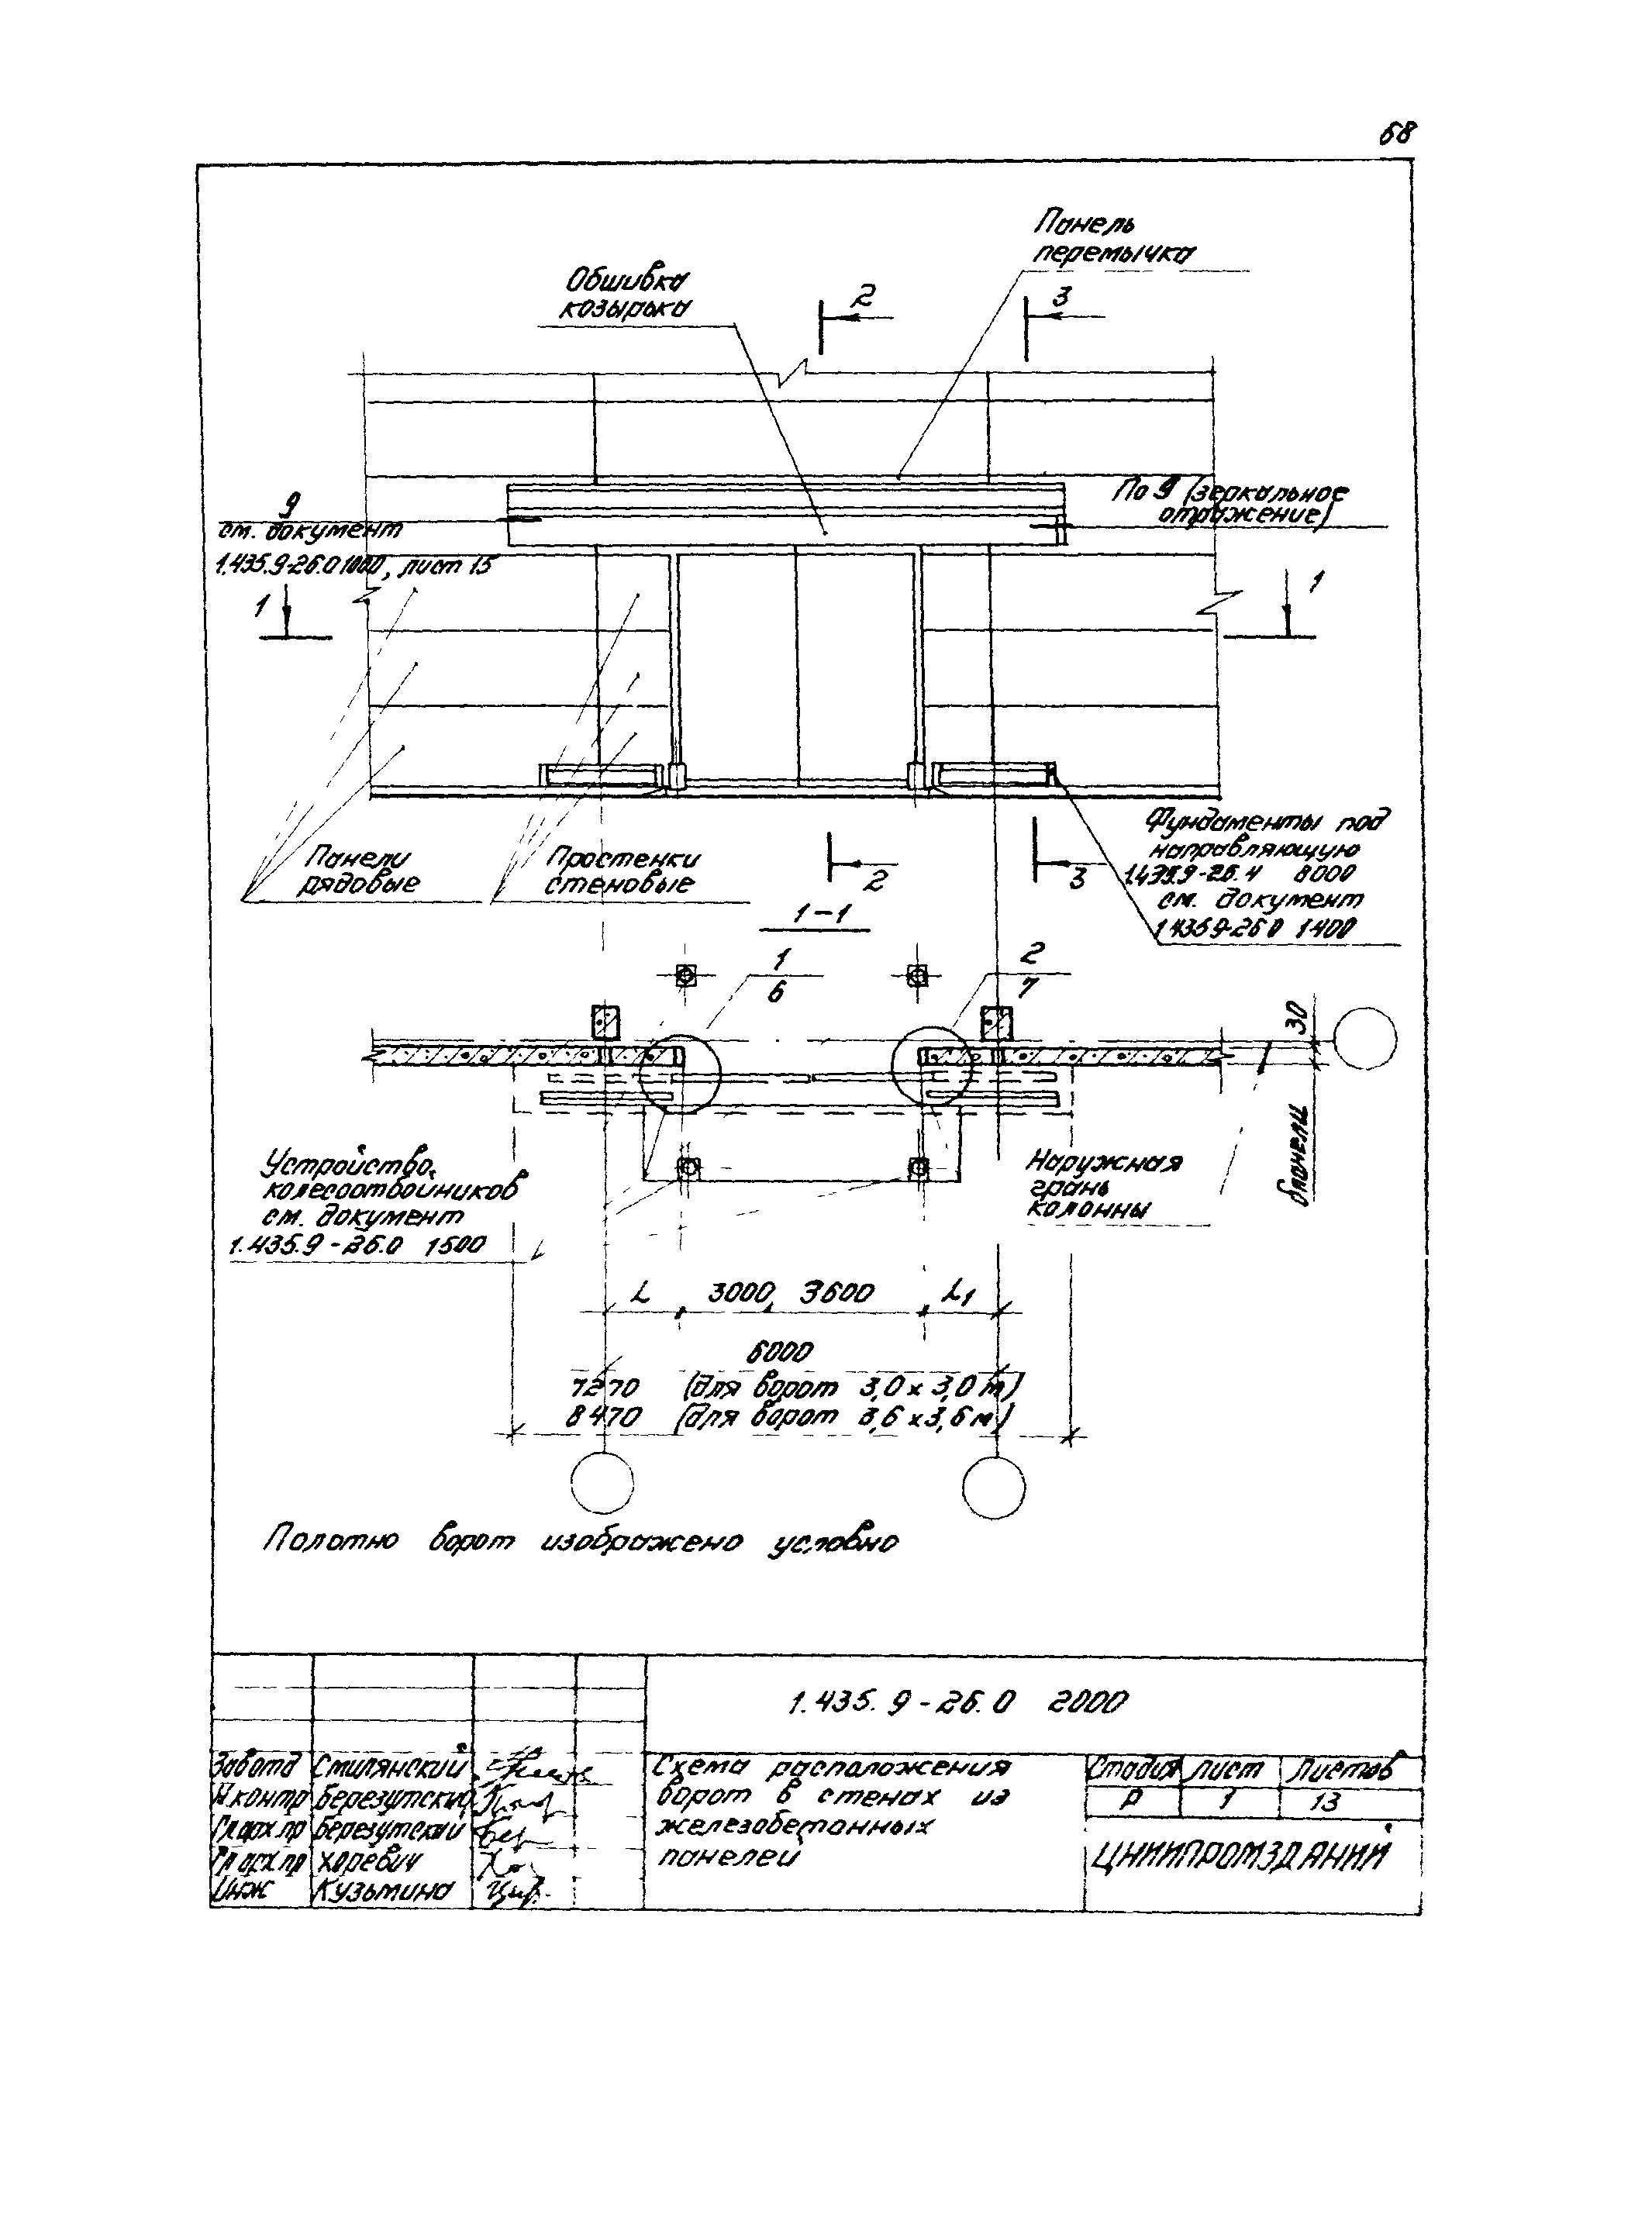 68
Панель
перемычка
Обшивка
козырька
2
3
9
см. документ
1.435.9-26.0 1000, лист 15
По 9 (зеркальное
отражение)
1
1
Панели
рядовые
Простенки
стеновые
2
3
Фундаменты под
направляющую
1.435.9-26.4 8000
см. документ
1.435.9-26.0 1400
1-1
1
6
2
7
30
δпанели
Устройство
колесоотбойников
см. документ
1.435.9-26.0 1500
Наружная
грань
колонны
L
3000, 3600
L1
6000
7270 (для ворот 3,0 х 3,0 м)
8470 (для ворот 3,6 х 3,6 м)
Полотно ворот изображено условно
1.435.9-26.0 2000
Зав отд Смилянский
Н контр Березутский
Гл арх пр Березутский
Гл арх пр Хоревич
Инж Кузьмина
Схема расположения
ворот в стенах из
железобетонных
панелей
Стадия Лист Листов
Р 1 13
ЦНИИПРОМЗДАНИЙ